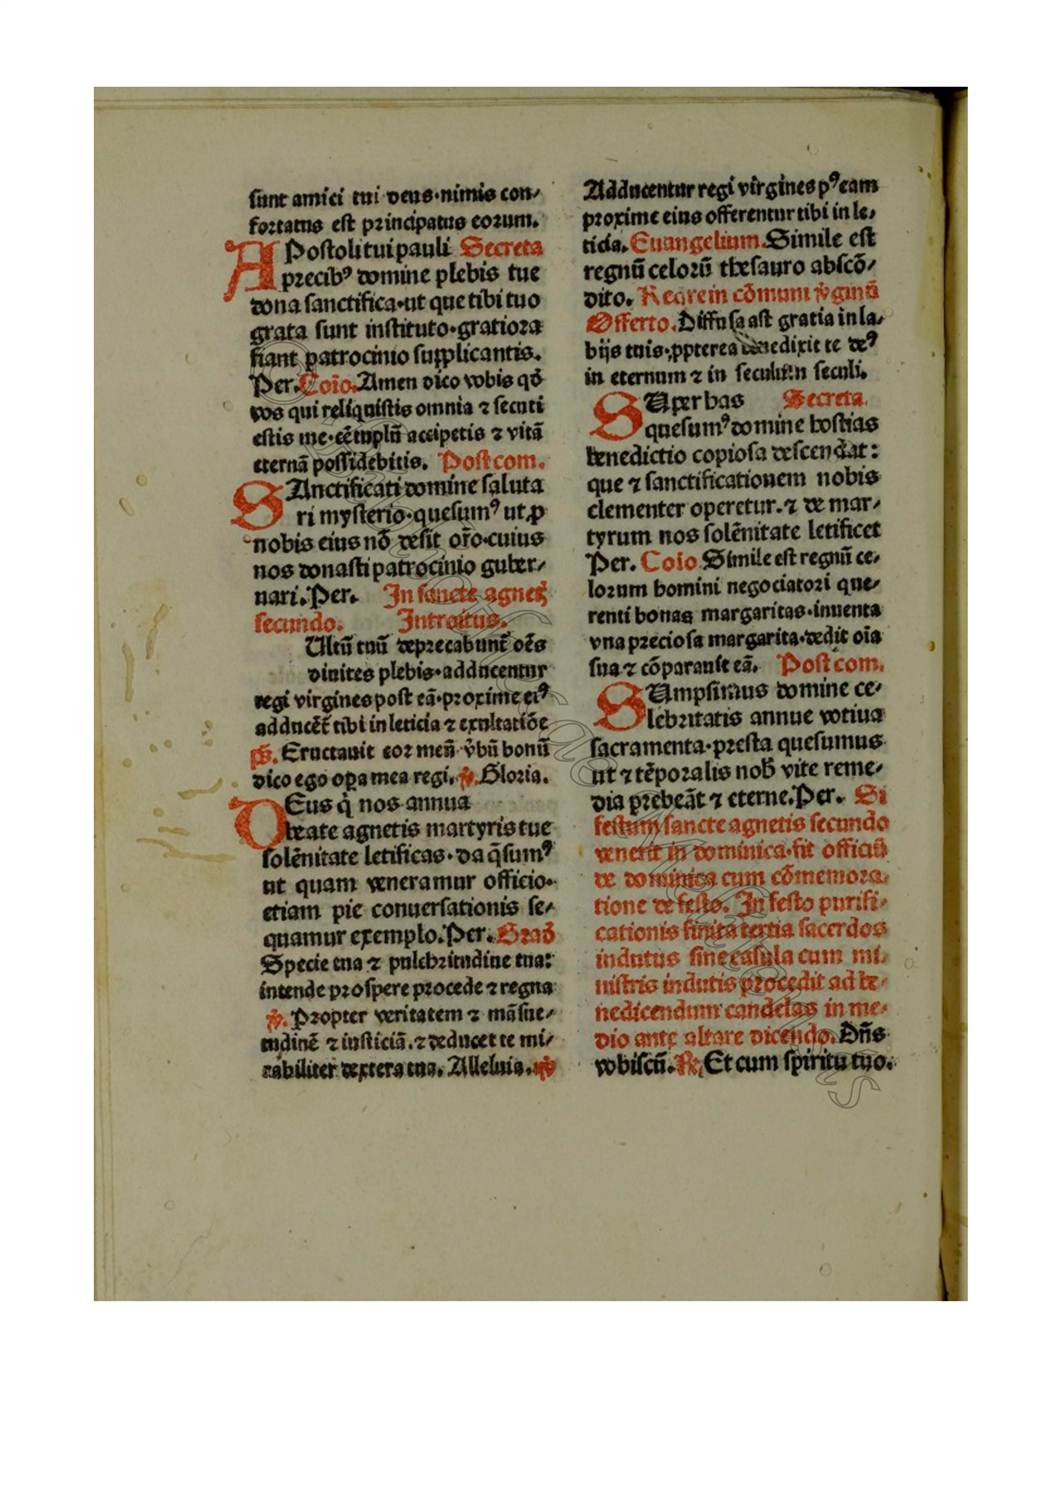 sunt amici tui deus·nimis con⸗
fortatus est principatus eorum.
APostoli tui pauli Secreta
precibꝰ domine plebis tue
dona sanctifica·ut que tibi tuo
grata sunt instituto·gratiora
fiant patrocinio supplicantis.
Per. Cōio. Amen dico vobis qđ
vos qui reliquistis omnia ⁊ secuti
estis me·cētuplū accipetis ⁊ vitā
eternā possidebitis. Postcom.
SAnctificati domine saluta
ri mysterio·quesumꝰ ut ꝓ
nobis eius nō desit or̄o·cuius
nos donasti patrocinio guber⸗
nari. Per. In sancte agnetꝭ
secundo. Introitus.
Ultū tuū deprecabunt᷑ oēs
diuites plebis·adducentur
regi virgines post eā·proxime eiꝰ
adducēt᷑ tibi in leticia ⁊ exultatiōe
p̄s. Eructauit cor meū v̄bū bonū
dico ego oꝑa mea regi. v̄. Gloria.
DEus q̇ nos annua
beate agnetis martyris tue
solēnitate letificas·da q̄sumꝰ
ut quam veneramur officio·
etiam pie conuersationis se⸗
quamur exemplo. Per. Grad̄
Specie tua ⁊ pulchritudine tua:
intende prospere procede ⁊ regna
v̄. Propter veritatem ⁊ māsue⸗
tudinē ⁊ iusticiā.⁊ deducet te mi⸗
rabiliter dextera tua. Alleluia. v̄
Adducentur regi virgines pꝰ eam
proxime eius offerentur tibi in le⸗
ticia. Euangelium. Simile est
regnū celorū thesauro abscō⸗
dito. Reqͥre in cōmuni v̄ginū
Offerto. Diffusa ast gratia in la⸗
bijs tuis·ꝓpterea benedixit te deꝰ
in eternum ⁊ in seculum seculi.
SUper has Secreta.
quesumꝰ domine hostias
benedictio copiosa descendat:
que ⁊ sanctificationem nobis
clementer operetur.⁊ de mar⸗
tyrum nos solēnitate letificet
Per. Coio Simile est regnū ce⸗
lorum homini negociatori que⸗
renti bonas margaritas·inuenta
vna preciosa margarita·dedit oīa
sua ⁊ cōparauit eā. Postcom.
SUmpsimus domine ce⸗
lebritatis annue votiua
sacramenta·presta quesumus
ut ⁊ tēporalis nob̄ vite reme⸗
dia prebeāt ⁊ eterne. Per. Si
festum sancte agnetis secundo
venerit in dominica·fit officiū
de dominica cum cōmemora⸗
tione de festo. In festo purifi⸗
cationis finita tertia sacerdos
indutus sine casula cum mi⸗
nistris indutis procedit ad be⸗
nedicendum candelas in me⸗
dio ante altare dicendo. Dn̄s
vobiscū. R̄. Et cum spiritu tuo.